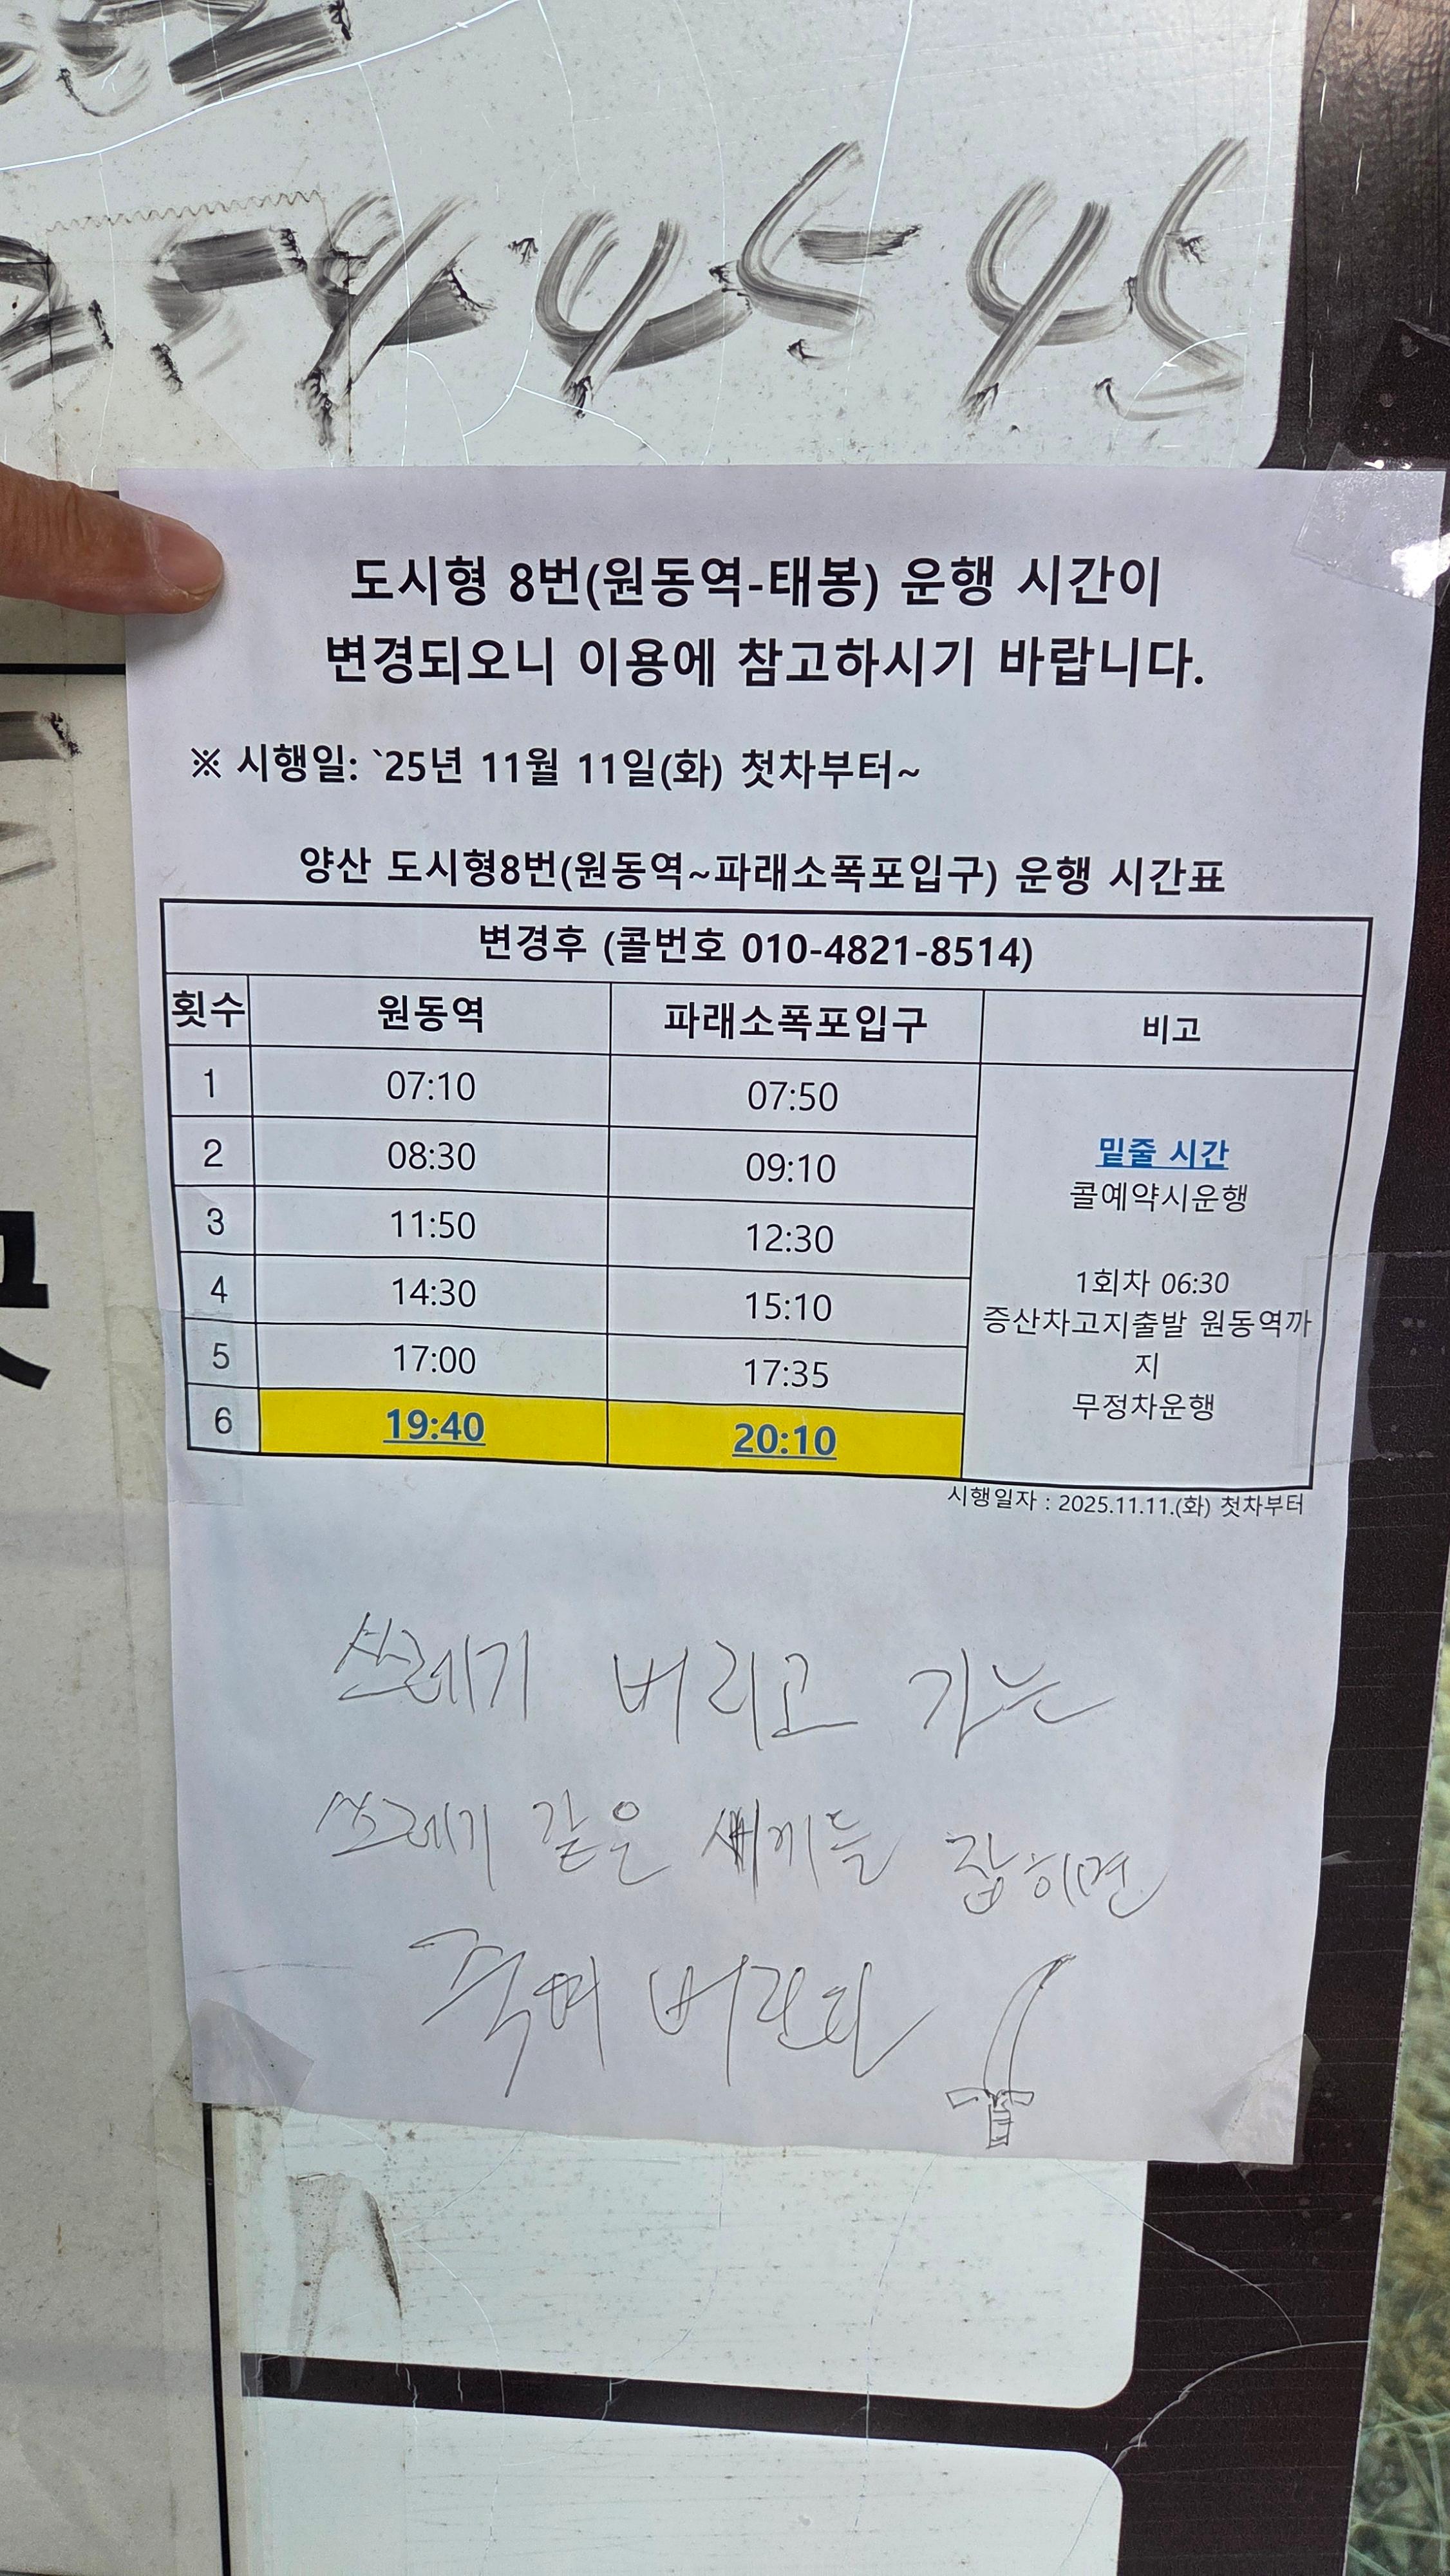 45 45
도시형 8번(원동역-태봉) 운행 시간이
변경되오니 이용에 참고하시기 바랍니다.
※ 시행일: `25년 11월 11일(화) 첫차부터~
양산 도시형8번(원동역~파래소폭포입구) 운행 시간표
변경후 (콜번호 010-4821-8514)
횟수 원동역 파래소폭포입구 비고
1 07:10 07:50
2 08:30 09:10
3 11:50 12:30
4 14:30 15:10
5 17:00 17:35
6 19:40 20:10
밑줄 시간
콜예약시운행
1회차 06:30
증산차고지출발 원동역까
지
무정차운행
시행일자 : 2025.11.11.(화) 첫차부터
쓰레기 버리고 가는
쓰레기 같은 새끼들 잡히면
죽여 버린다